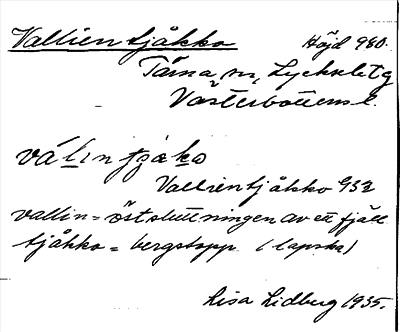 Vallientjåkko Höjd 980.
Tärna sn, Lycksele tg
Västerbottens l.
válin tjåkο
Vallientjåkko 932
vallin = östsluttningen av ett fjäll
tjåkko = bergstopp (lapska)
Lisa Lidberg 1935.